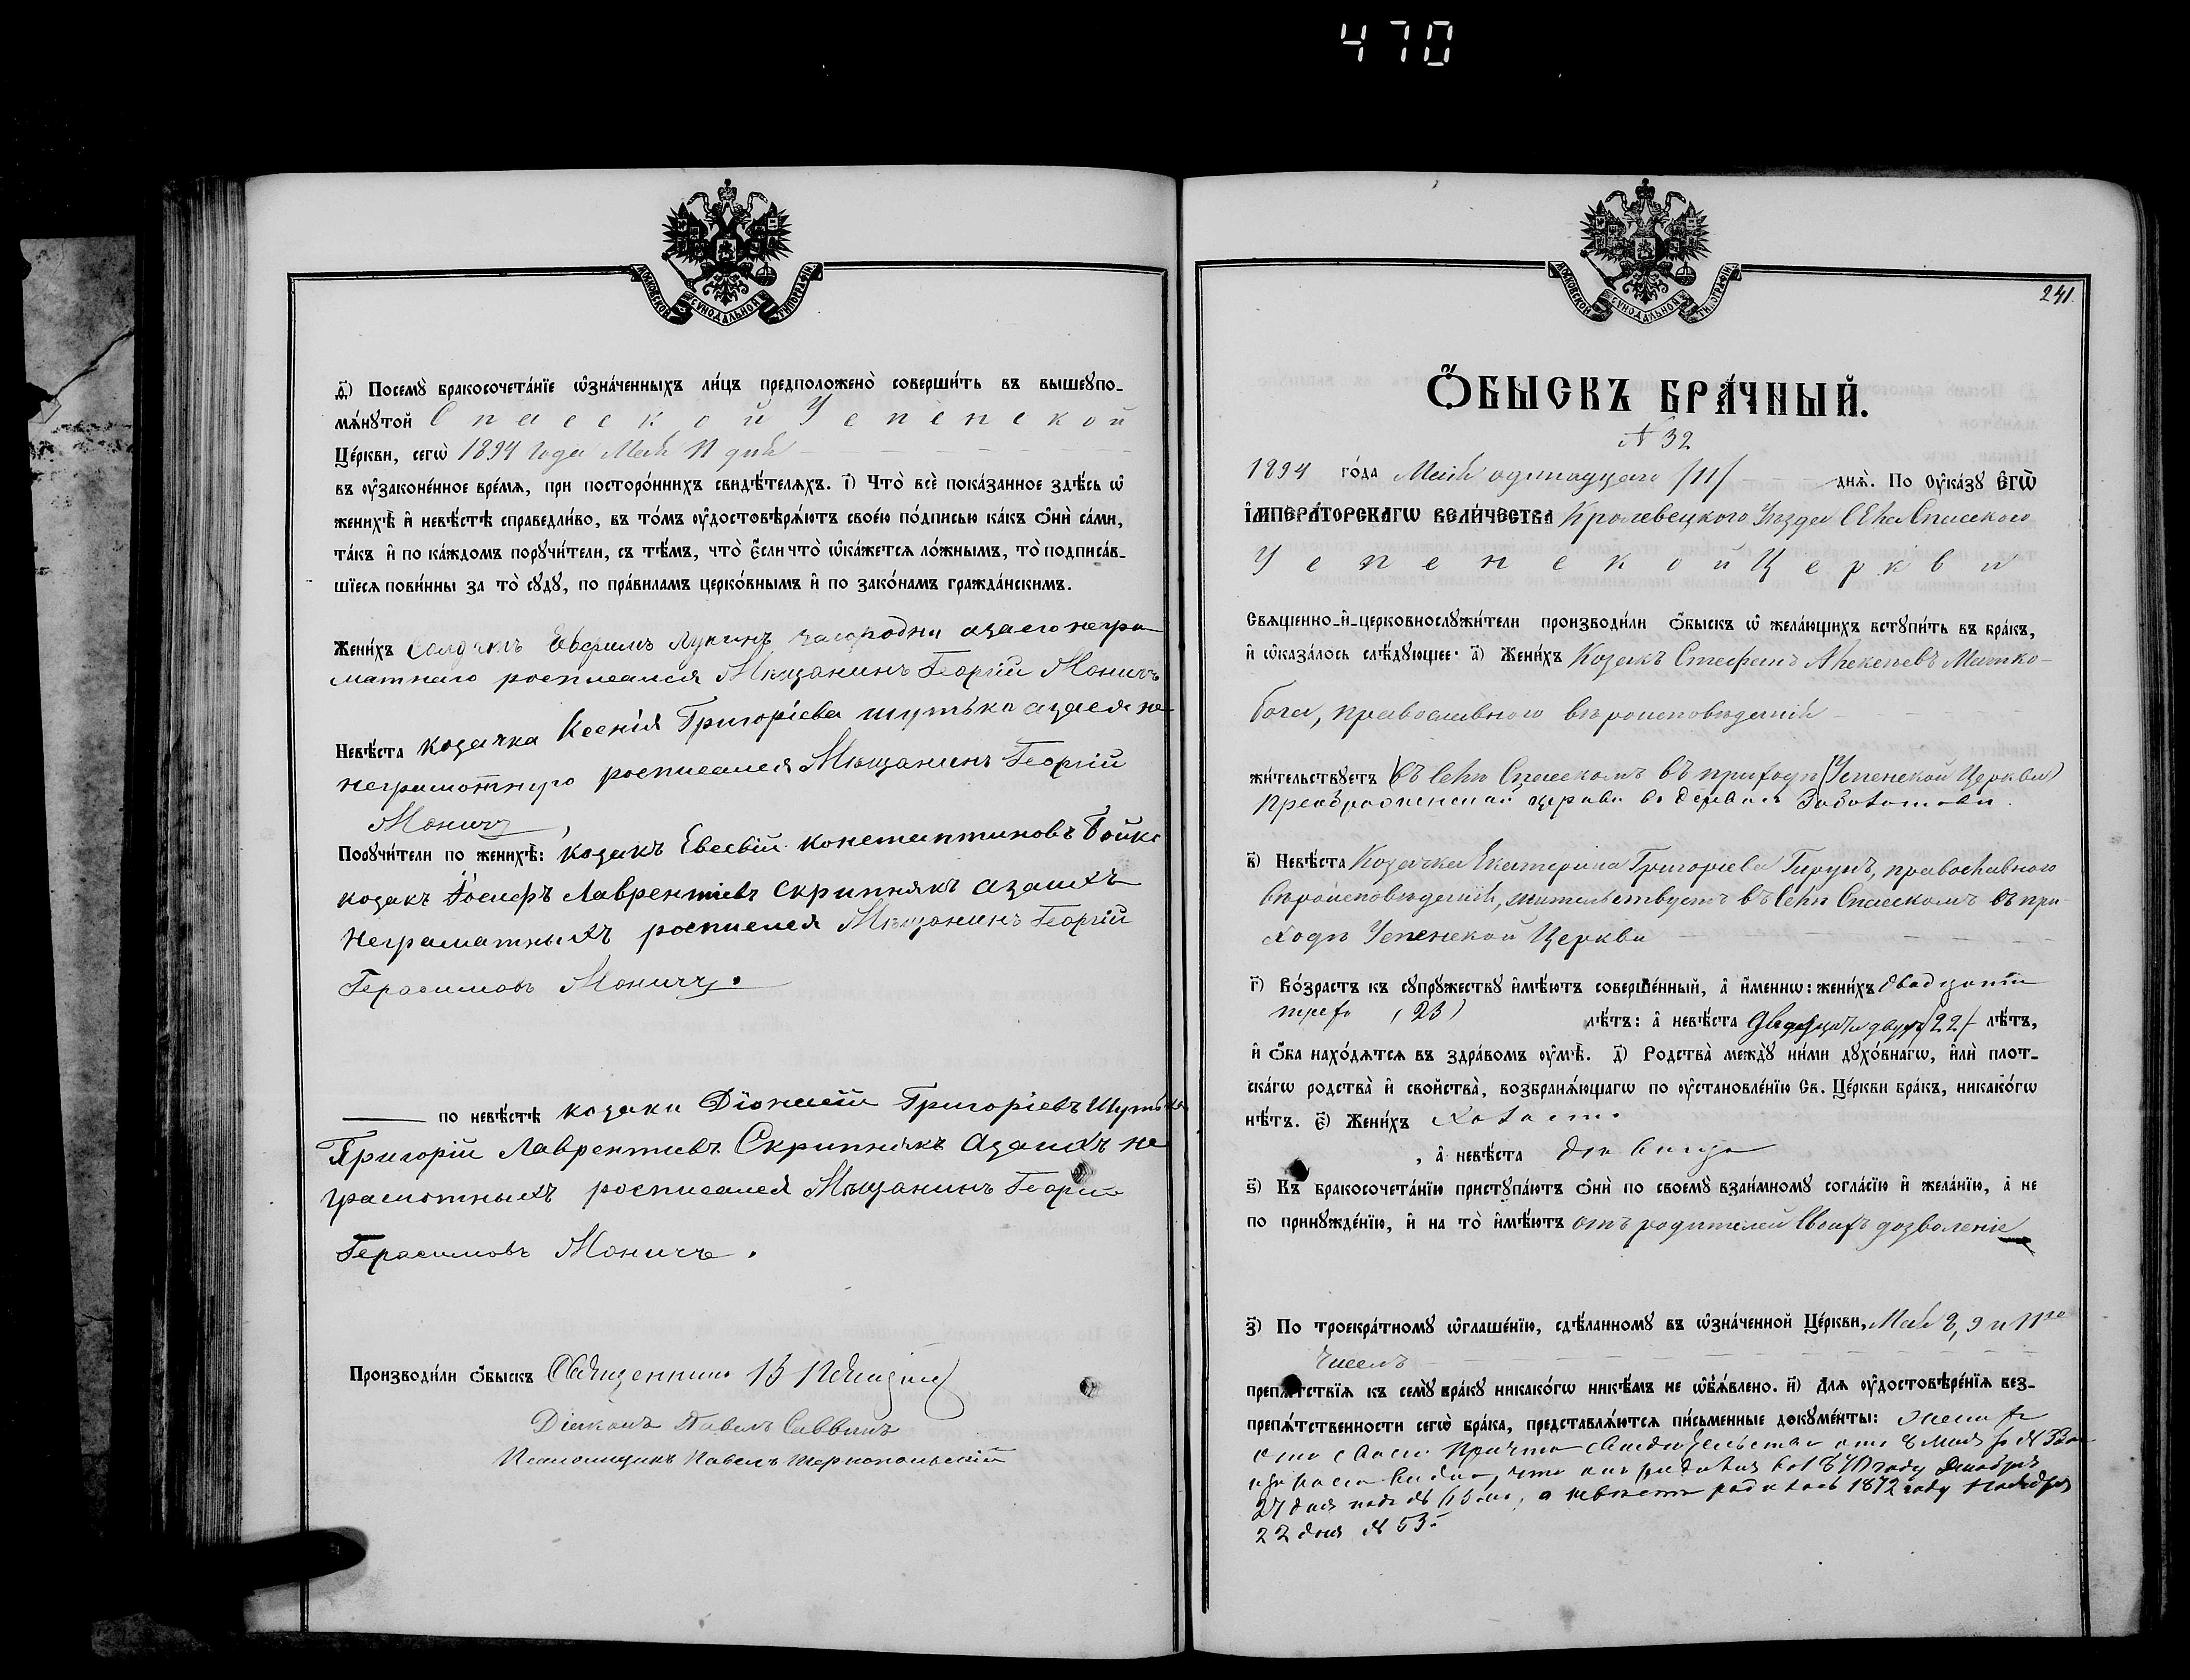 470
МОСКОВСКОЙ СѴНОДАЛЬНОЙ ТИПОГРАФІИ
д҃і) Посемꙋ̀ бракосочета́нїе ѡ҆зна́ченныхъ ли́цъ предположено̀ соверши́ть въ вышеꙋпо-
мѧ́нꙋтой Спасской Успенской
Це́ркви, сегѡ̀ 1894 года Маія 11 дня
въ оу҆зако́ненное вре́мѧ, при посторо́ннихъ свидѣ́телѧхъ. і҃) Что̀ всѐ пока́занное здѣ́сь ѡ҆
женихѣ̀ и҆ невѣ́стѣ справедли́во, въ то́мъ оу҆достовѣрѧ́ютъ свое́ю по́дписью ка́къ ѻ҆нѝ са́ми,
та́къ и҆ по ка́ждомъ порꙋчи́тели, съ тѣ́мъ, что̀ є҆́сли что̀ ѡ҆ка́жетсѧ ло́жнымъ, то̀ подписа́в-
шїесѧ пови́нны за то̀ сꙋдꙋ̀, по пра́виламъ церко́внымъ и҆ по зако́намъ гражда́нскимъ.
Жени́хъ Солдатъ Евфимъ Лукинъ азаего негра
матнаго росписался Мѣщанинъ Георгій Моничъ
Невѣ́ста козачка Ксенія Григоріева шутька азаея не
неграмотную росписался Мѣщанинъ Георгій
Моничъ
Порꙋчи́тели по женихѣ̀: козакъ Евсевій Константиновъ Бойко
козакъ Іосифъ Лаврентіевъ Скрипнякъ азаихъ
неграматныхъ росписася Мѣщанинъ Георгій
Герасимовъ Моничъ.
по невѣ́стѣ козаки Діонисій Григоріевъ Шутька
Григорій Лаврентіевъ Скрипнякъ азаихъ не
грамотныхъ росписался Мѣщанинъ Георгій
Герасимовъ Моничъ.
Производи́ли ѻ҆́быскъ Священникъ
Діаконъ Павелъ Саввинъ
Псаломщикъ Павелъ
МОСКОВСКОЙ СѴНОДАЛЬНОЙ ТИПОГРАФІИ
241.
Ѻ҆́БЫСКЪ БРА́ЧНЫЙ.
№ 32
1894 го́да Маія одинадцаго /11/ днѧ̀. По Оу҆ка́зꙋ Є҆гѡ̀
І҆мпера́торскагѡ Вели́чества Кролевецкого Уѣзда Села Спасского
Успенской Церкви
Свѧще́нно-и҆-церковнослꙋжи́тели производи́ли ѻ҆́быскъ ѡ҆ жела́ющихъ встꙋпи́ть въ бра́къ,
и҆ ѡ҆каза́лось слѣ́дꙋющее: а҃) Жени́хъ Козакъ Стефанъ Алексѣевъ Матко-
бога, православного вѣроисповѣданія
жи́тельствꙋетъ (въ селѣ Спасскомъ въ приходѣ (Успенской Церкви)
Преображенской церкви въ деревнѣ
в҃) Невѣ́ста Козачка Екатерина Григоріева Гирунъ, православного
вѣроисповѣданія, жительствуетъ въ селѣ Спасскомъ въ при-
ходѣ Успенской Церкви
г҃) Во́зрастъ къ сꙋпрꙋ́жествꙋ и҆мѣ́ютъ соверше́нный, а҆ и҆́меннѡ: жени́хъ двадцати
трехъ (23) лѣ́тъ: а҆ невѣ́ста двадцати двухъ /22/ лѣ́тъ,
и҆ ѻ҆́ба нахо́дѧтсѧ въ здра́вомъ оу҆мѣ̀. д҃) Родства̀ междꙋ̀ ни́ми дꙋхо́внагѡ, и҆лѝ плот-
ска́гѡ родства̀ и҆ сво́йства, возбранѧ́ющагѡ по оу҆становле́нїю Св. Це́ркви бра́къ, никако́гѡ
нѣ́тъ. є҃) Жени́хъ холостъ
, а҆ невѣ́ста дѣвица
ѕ҃) Къ бракосочета́нїю пристꙋпа́ютъ ѻ҆нѝ по своемꙋ̀ взаи́мномꙋ согла́сїю и҆ жела́нїю, а҆ не
по принꙋжде́нїю, и҆ на то̀ и҆мѣ́ютъ отъ родителей своихъ дозволеніе
з҃) По троекра́тномꙋ ѡ҆глаше́нїю, сдѣ́ланномꙋ въ ѡ҆зна́ченной Це́ркви, Маія 8, 9 и 11го
числъ
препѧ́тствїѧ къ семꙋ̀ бра́кꙋ никако́гѡ никѣ́мъ не ѡ҆б̾ѧ́влено. и҃) Длѧ оу҆достовѣре́нїѧ без-
препѧ́тственности сегѡ̀ бра́ка, представлѧ́ютсѧ пи́сьменные докꙋме́нты: жениха
отъ своего Причта свидѣтельство отъ 8 мая за № 33
изъ коего видно, что онъ родился въ 1870 году Декабря
27 дня подъ №, а невѣста родилась 1872 году Ноября
22 дня № 53.